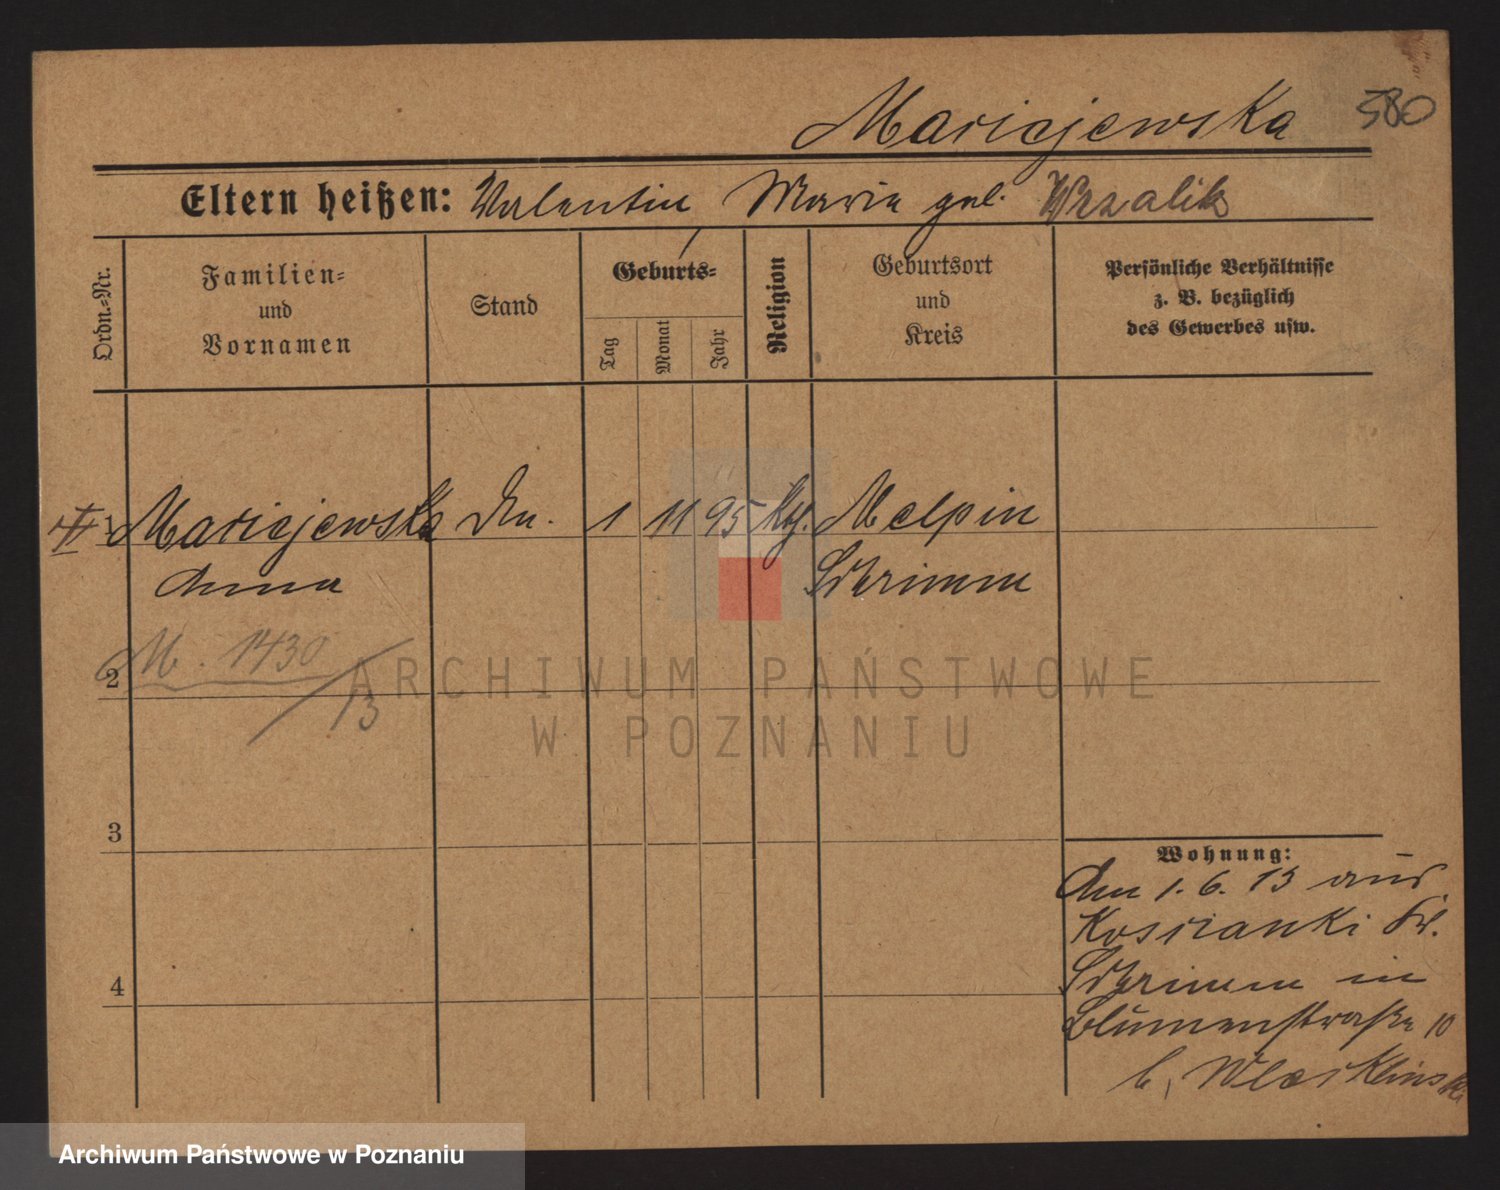 Maciejewska 380
Eltern heißen: Valentin Maria geb. Wrzalik
Ordn.-Nr.
Familien-
und
Vornamen
Stand
Geburts-
Tag
Monat
Jahr
Religion
Geburtsort
und
Kreis
Persönliche Verhältnisse
z. B. bezüglich
des Gewerbes usw.
1 Maciejewska 1 11 95 Melpin
Anna Schrimm
2 M. 1430
/13
3
4
Wohnung:
Am 1. 6. 13 aus
Kosscianki Kr.
Schrimm in
Blumenstraße 10
b.
ARCHIWUM PAŃSTWOWE
W POZNANIU
Archiwum Państwowe w Poznaniu